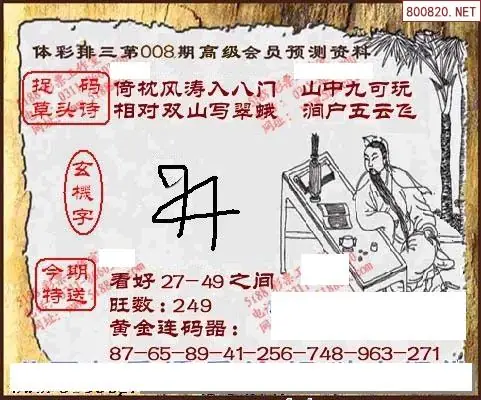 800820.NET
体彩排三第008期高级会员预测资料
捉码
草头诗
倚枕风涛入八门 山中九可玩
相对双山写翠蛾 涧户五云飞
玄機字
今期
特送
看好27-49之间
旺数:249
黄金连码器:
87-65-89-41-256-748-963-271